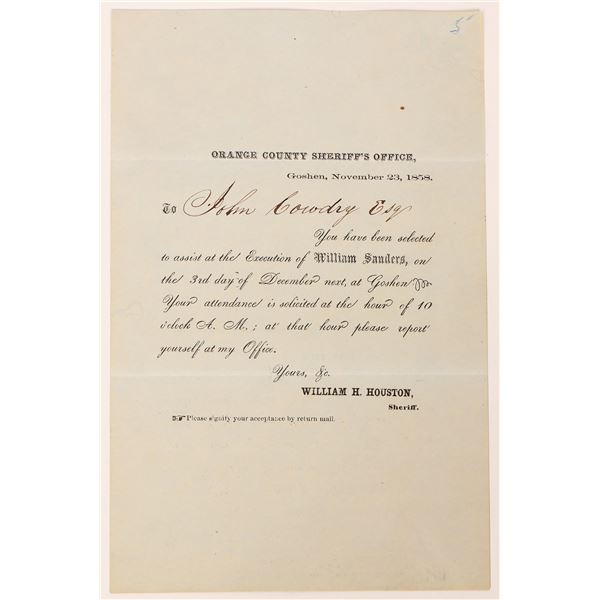 5
ORANGE COUNTY SHERIFF'S OFFICE,
Goshen, November 23, 1858.
To John Cowdry Esq
You have been selected
to assist at the Execution of William Sanders, on
the 3rd day of December next, at Goshen
Your attendance is solicited at the hour of 10
o'clock A. M.; at that hour please report
yourself at my Office.
Yours, &c.
WILLIAM H. HOUSTON,
Sheriff.
☞ Please signify your acceptance by return mail.